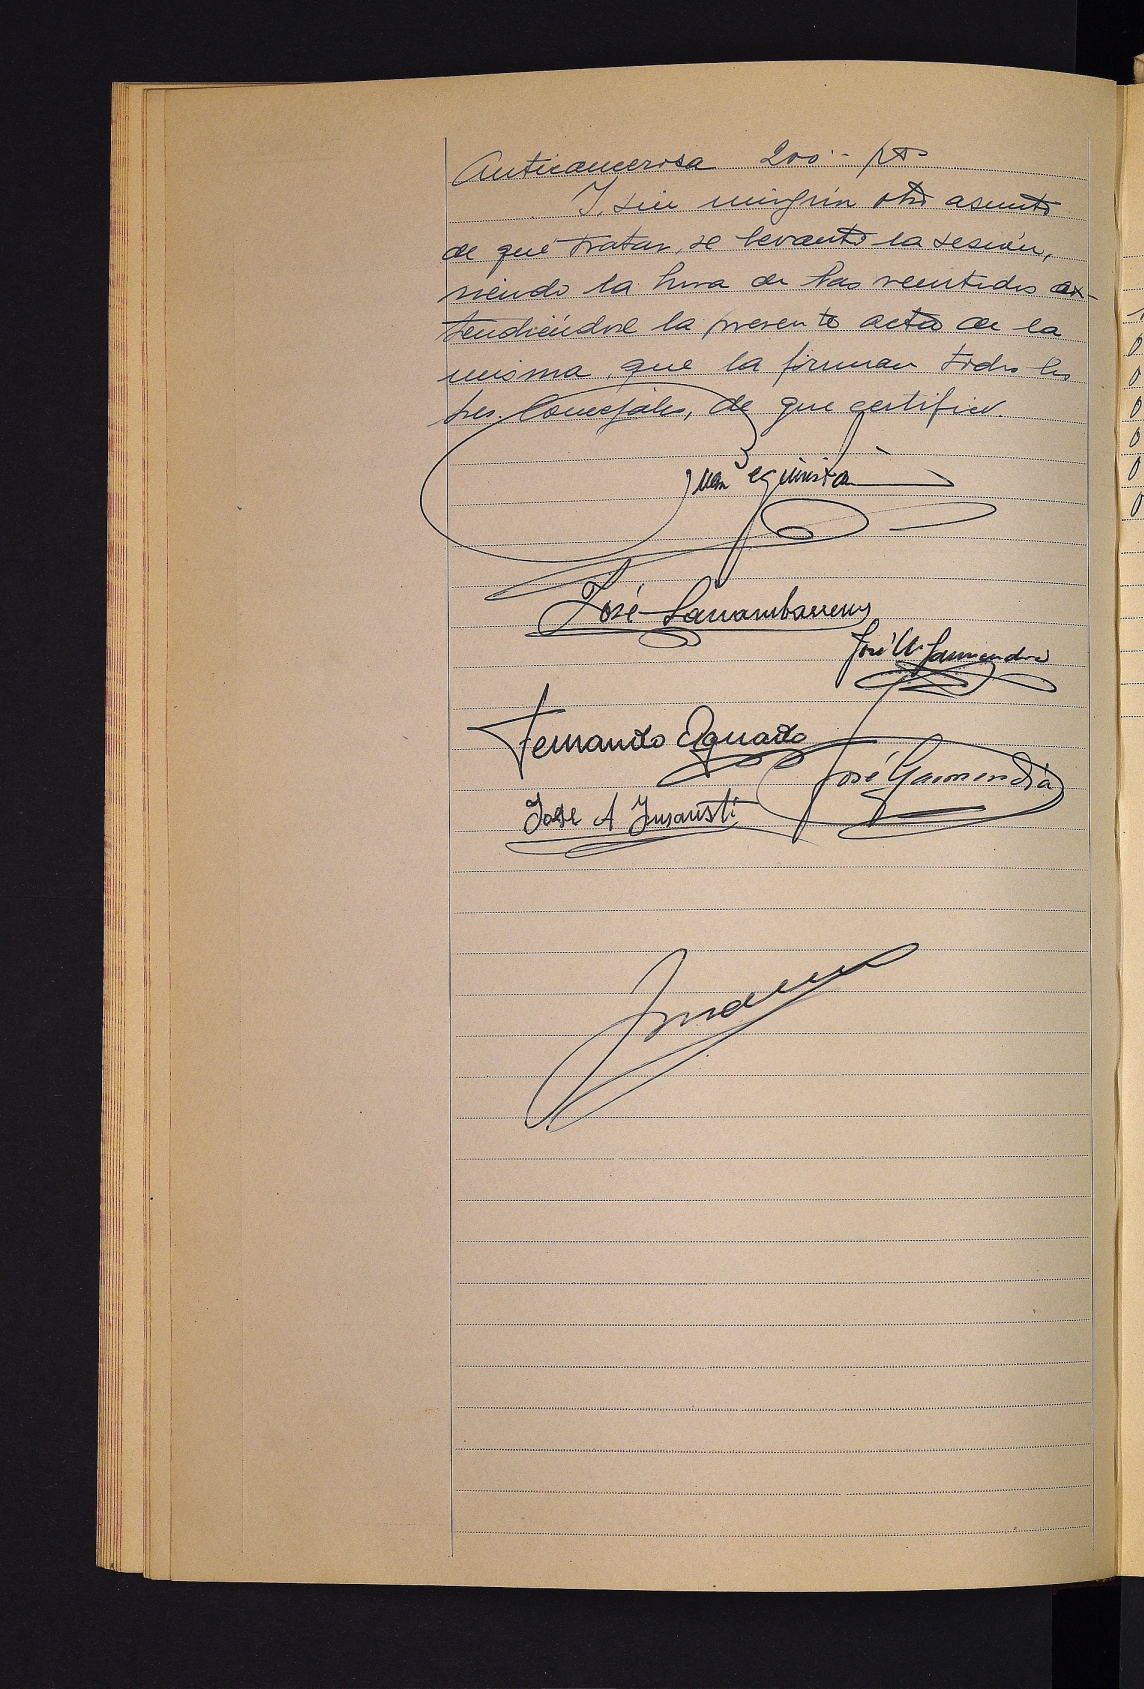 Anticancerosa 200'- pts
Y, sin ningún otro asunto
de qué tratar, se levantó la sesión,
siendo la hora de las veintidos ex-
tendiéndose la presente acta de la
misma, que la firman todos los
sres. Concejales, de que certifico.
Juan Eguiristain
José Larrambarrena
José Mª Garmendia
Fernando Aguado
José Garmendia
Jose A Insausti